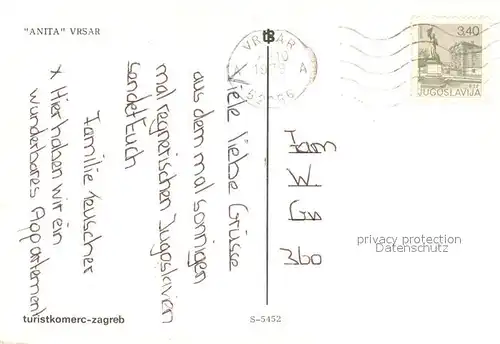 "ANITA" VRSAR
Viele liebe Grüsse
aus dem mal sonnigen
mal regnerischen Jugoslavien
sendet Euch
Familie Teuscher
x Hier haben wir ein
wunderbares Appartement
turistkomerc-zagreb
S-5452
VRSAR
1979
A
3.40
JUGOSLAVIJA
Fam
W.
360
privacy protection
Datenschutz